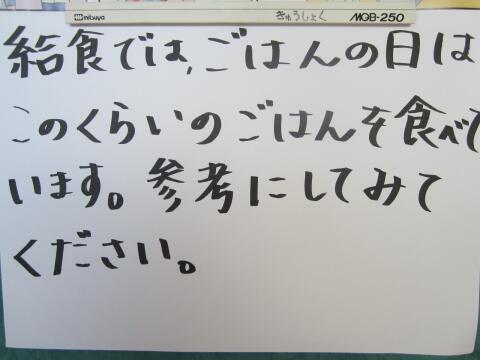 mitsuya きゅうしょく MGB-250
給食では、ごはんの日は
このくらいのごはんを食べて
います。参考にしてみて
ください。